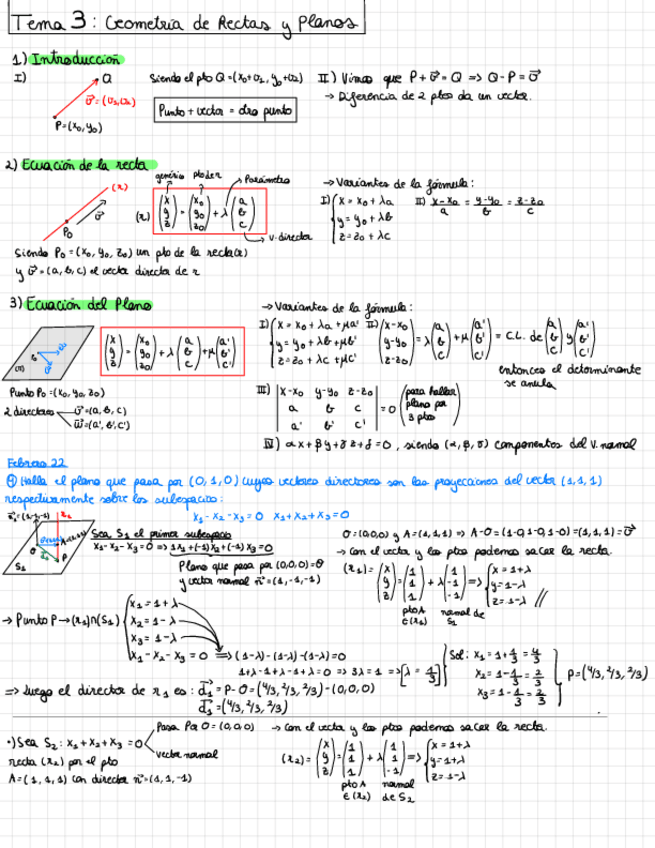 Tema 3: Geometría de Rectas y Planos
1) Introducción
I)
Q
v⃗=(v₁,v₂)
P=(x₀,y₀)
Siendo el pto Q=(x₀+v₁, y₀+v₂)
Punto + vector = otro punto
II) Vimos que P+v⃗=Q => Q-P=v⃗
→ Diferencia de 2 ptos da un vector.
2) Ecuación de la recta
(r)
v⃗
P₀
genérico pto de r Parámetro
(r) (x y z) = (x₀ y₀ z₀) + λ (a b c)
v. director
Siendo P₀=(x₀, y₀, z₀) un pto de la recta(r)
y v⃗=(a, b, c) el vector director de r
→ Variantes de la fórmula:
I) x = x₀ + λa
y = y₀ + λb
z = z₀ + λc
II) x-x₀/a = y-y₀/b = z-z₀/c
3) Ecuación del Plano
P₀
(π)
(x y z) = (x₀ y₀ z₀) + λ (a b c) + μ (a' b' c')
Punto P₀=(x₀, y₀, z₀)
2 directores
v⃗=(a, b, c)
w⃗=(a', b', c')
→ Variantes de la fórmula:
I) x = x₀ + λa + μa'
y = y₀ + λb + μb'
z = z₀ + λc + μc'
II) (x-x₀ y-y₀ z-z₀) = λ (a b c) + μ (a' b' c') = C.L. de (a b c) y (a' b' c')
entonces el determinante
se anula
III) |x-x₀ y-y₀ z-z₀|
|a b c| = 0
|a' b' c'|
(para hallar plano por 3 ptos)
IV) αx + βy + γz + δ = 0, siendo (α, β, γ) componentes del v. normal
Febrero 22
Halla el plano que pasa por (0,1,0) cuyos vectores directores son las proyecciones del vector (1,1,1)
respectivamente sobre los subespacios:
x₁-x₂-x₃=0 x₁+x₂+x₃=0
S₁
O
P
Sea S₁ el primer subespacio
x₁-x₂-x₃=0 => 1x₁+(-1)x₂+(-1)x₃=0
Plano que pasa por (0,0,0)=O
y vector normal n⃗=(1,-1,-1)
O=(0,0,0) y A=(1,1,1) => A-O=(1-0,1-0,1-0)=(1,1,1)=v⃗
→ Con el vector y los ptos podemos sacar la recta.
(r₁) = (x y z) = (1 1 1) + λ (1 -1 -1) => x=1+λ
y=1-λ
z=1-λ //
pto A ∈(r₁)
normal de S₁
→ Punto P → (r₁)∩(S₁)
x₁ = 1+λ
x₂ = 1-λ
x₃ = 1-λ
x₁-x₂-x₃ = 0 => (1-λ)-(1-λ)-(1-λ)=0
1+λ-1+λ-1+λ=0 => 3λ=1 => [λ = 1/3]
Sol: x₁=1+1/3=4/3
x₂=1-1/3=2/3
x₃=1-1/3=2/3
P=(4/3, 2/3, 2/3)
=> Luego el director de r₁ es: d₁⃗=P-O=(4/3, 2/3, 2/3)-(0,0,0)
d₁⃗=(4/3, 2/3, 2/3)
·) Sea S₂: x₁+x₂+x₃=0
Pasa Por O=(0,0,0)
vector normal
recta (r₂) por el pto
A=(1,1,1) con director n⃗=(1,1,-1)
→ Con el vector y los ptos podemos sacar la recta.
(r₂) = (x y z) = (1 1 1) + λ (1 1 -1) => x=1+λ
y=1+λ
z=1-λ
pto A ∈(r₂)
normal de S₂